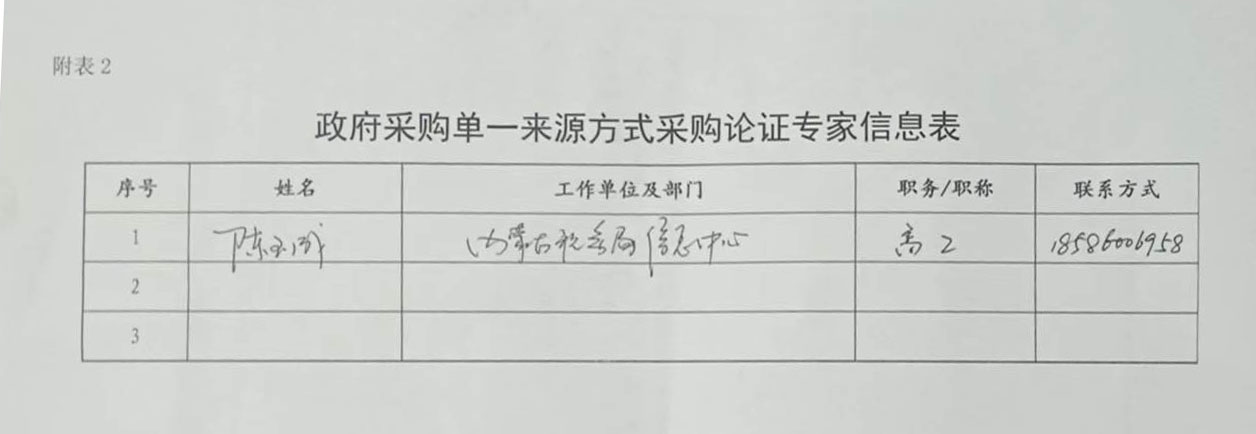 附表 2
政府采购单一来源方式采购论证专家信息表
序号 姓名 工作单位及部门 职务/职称 联系方式
1 陈玉成 内蒙古税务局信息中心 高工 18586006958
2
3